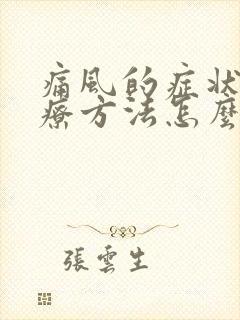 痛風的症狀
療方法怎麼
張雲生